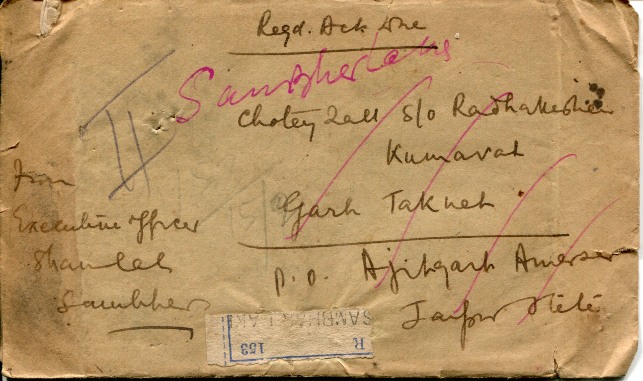 Regd. Ack Due
Sambherlake
Chotey Lall S/o Radhakeshen
Kumavat
Garh Taknet
P.O. Ajitgarh Amerser
Jaipur State
From
Executive officer
Shamlat
Sambher
R SAMBHAR LAKE
153